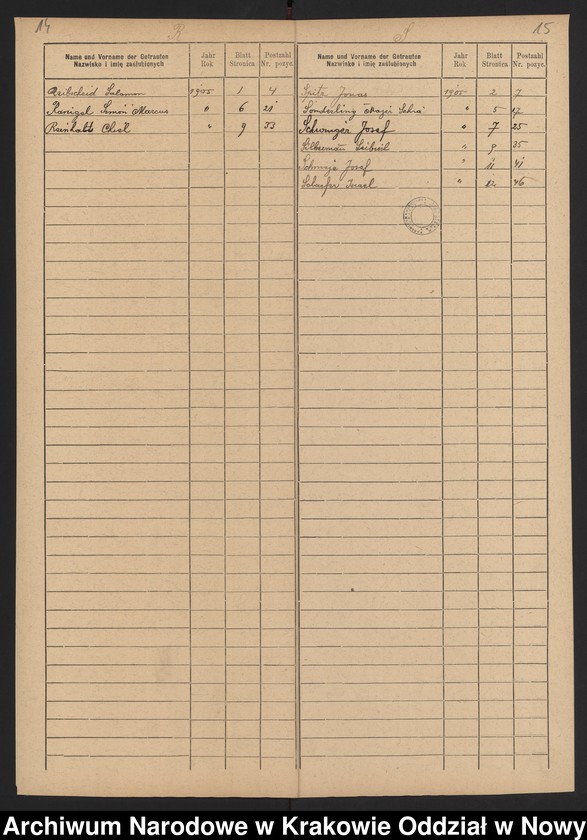 14
R
Name und Vorname der Getrauten
Nazwisko i imię zaślubionych
Jahr
Rok
Blatt
Stronica
Postzahl
Nr. pozyc.
Salamon 1905 1 4
Marcus " 6 21
" 9 33
S
15
Name und Vorname der Getrauten
Nazwisko i imię zaślubionych
Jahr
Rok
Blatt
Stronica
Postzahl
Nr. pozyc.
Spitz Jonas 1905 2 7
Sonderling " 5 17
Josef " 7 25
Silberman " 9 35
Josef " 11 41
Schaefer " 12 46
Archiwum Narodowe w Krakowie Oddział w Nowy